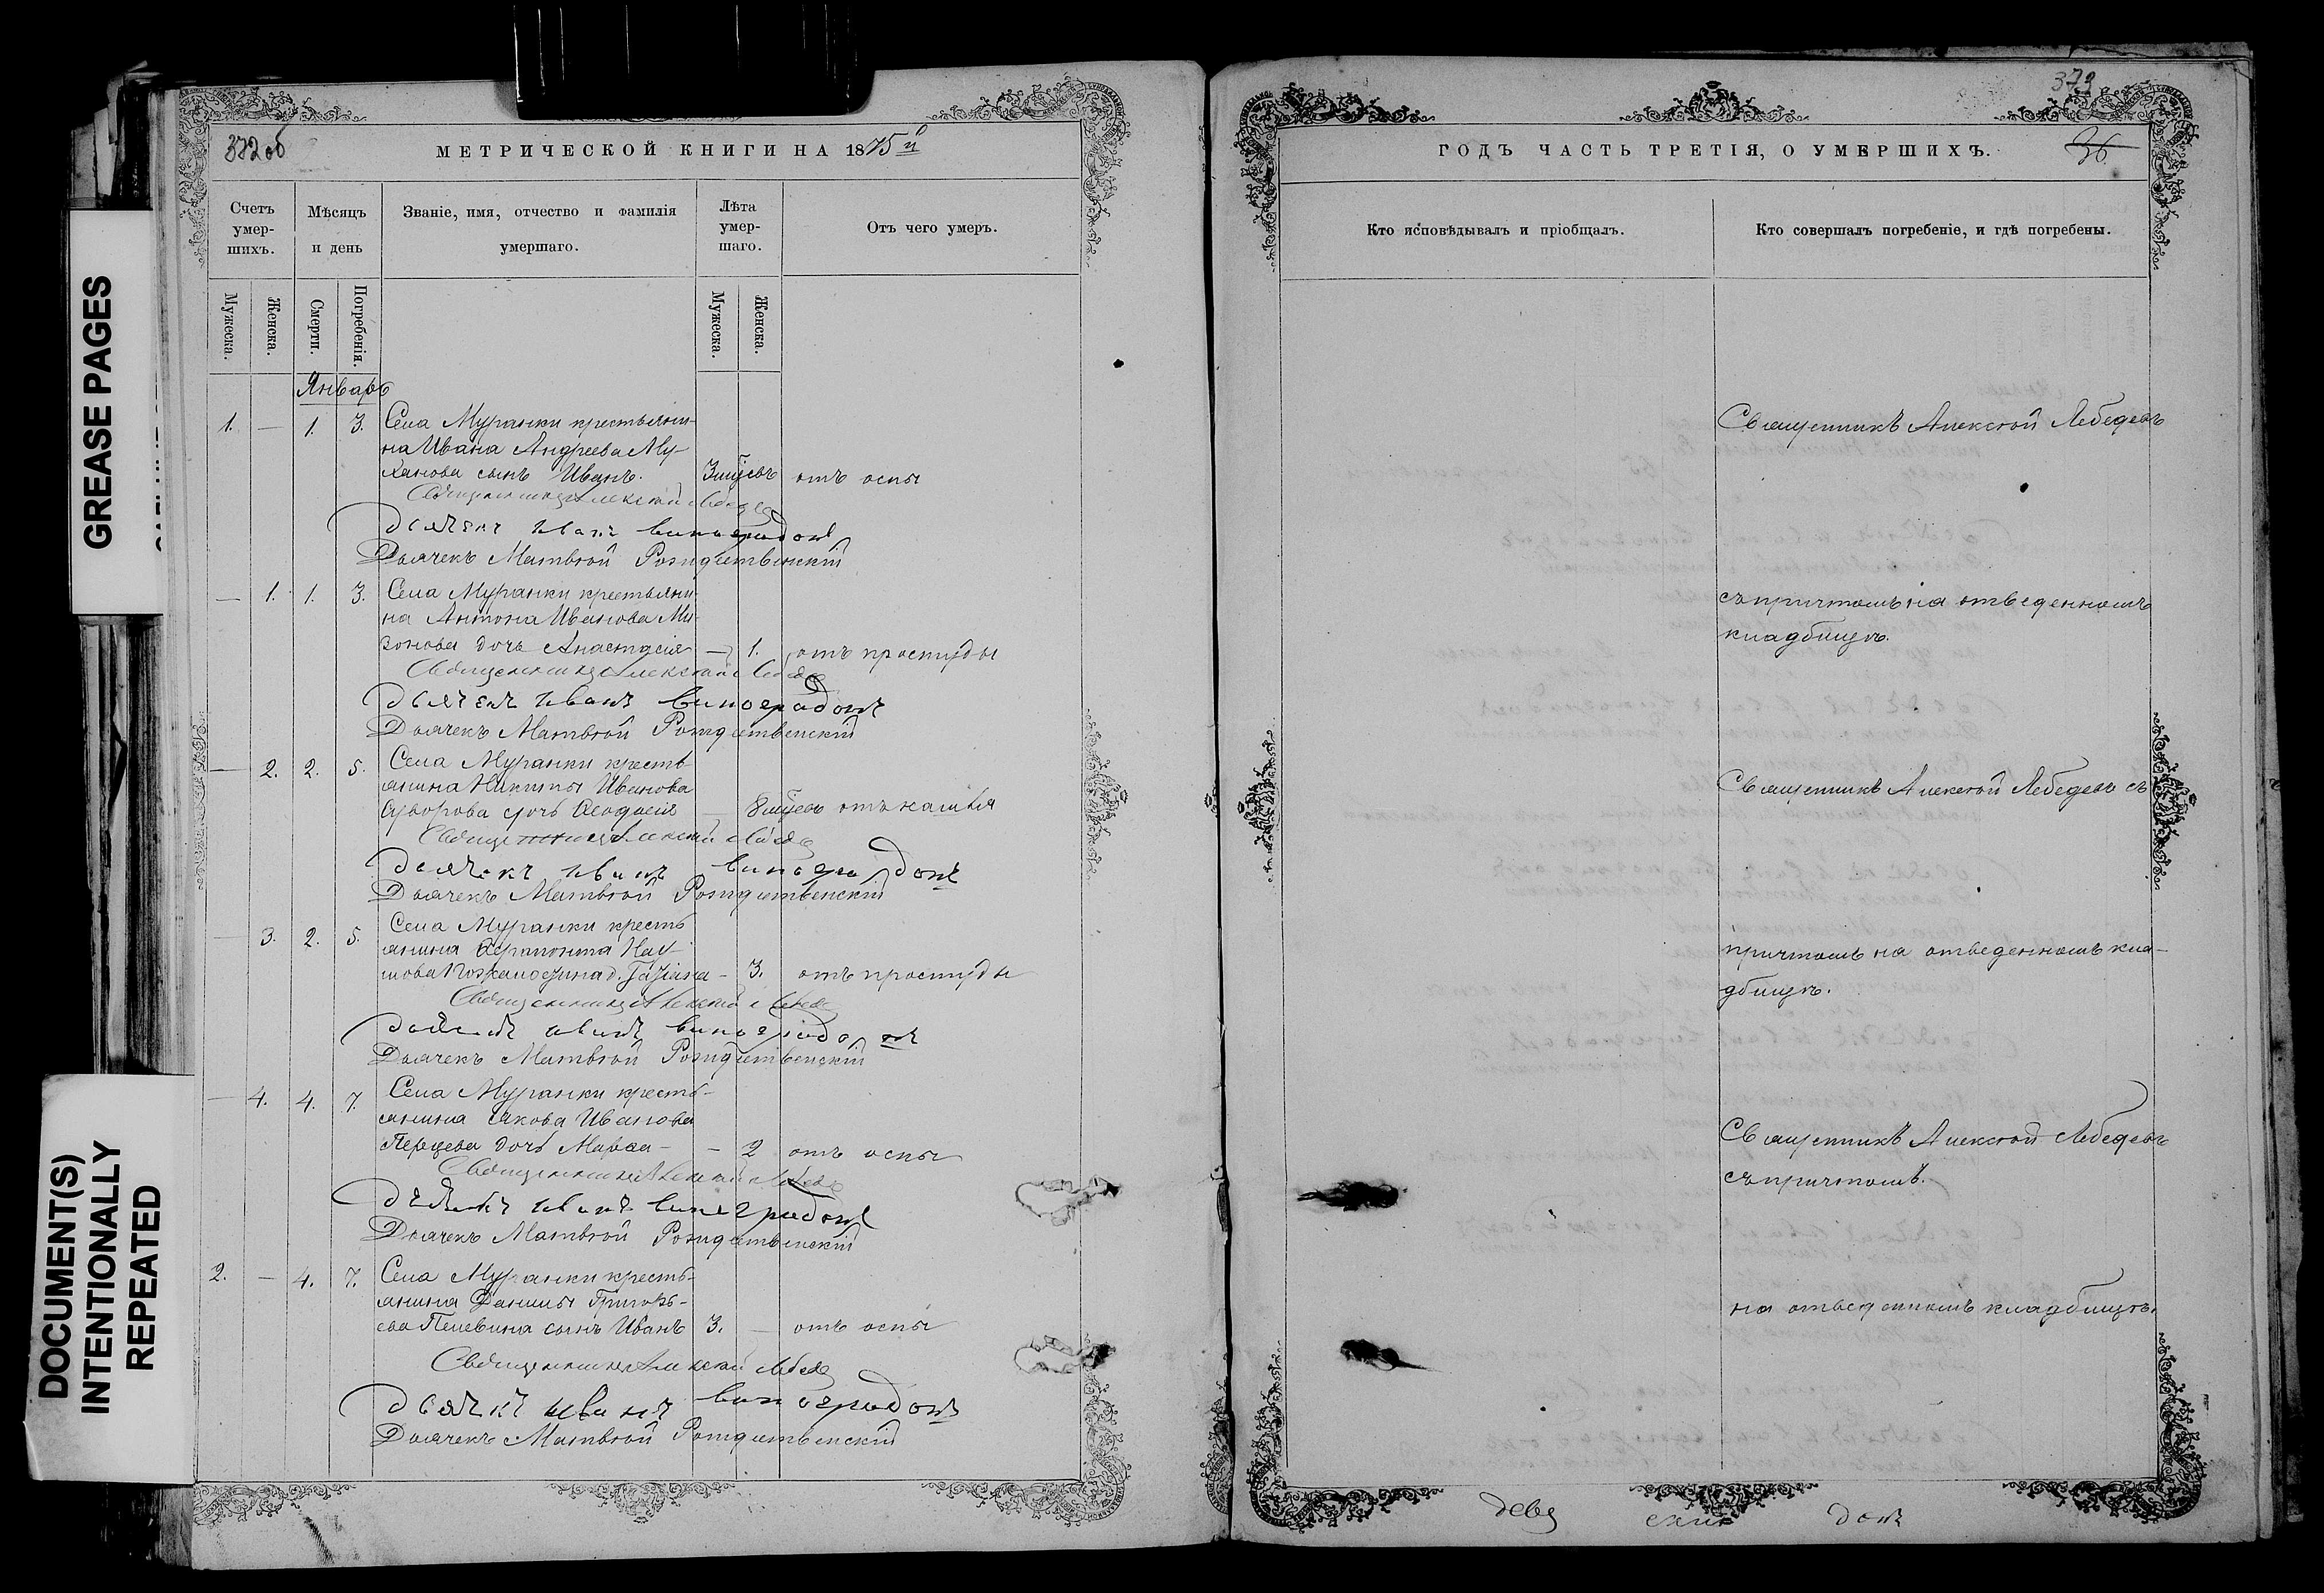 GREASE PAGES
DOCUMENT(S)
INTENTIONALLY
REPEATED
372об
МЕТРИЧЕСКОЙ КНИГИ НА 1875й
Счетъ умер-шихъ.
Мѣсяцъ и день
Званіе, имя, отчество и фамилія умершаго.
Лѣта умер-шаго.
Отъ чего умеръ.
Мужеска.
Женска.
Смерти.
Погребенія.
Мужеска.
Женска.
Январь
1. — 1. 3. Села Муранки крестьяни-
на Ивана Андреева Му-
ханова сынъ Иванъ. отъ оспы
Священникъ Алексѣй Лебедевъ
Дьячекъ Иванъ Виноградовъ
Дьячекъ Матвѣй Рождественскій
— 1. 1. 3. Села Муранки крестьяни-
на Антона Иванова
дочь Анастасія — 1. отъ простуды
Священникъ Алексѣй Лебедевъ
Дьячекъ Иванъ Виноградовъ
Дьячекъ Матвѣй Рождественскій
— 2. 2. 5. Села Муранки кресть
янина Никиты Иванова
дочь — отъ кашля
Священникъ Алексѣй Лебедевъ
Дьячекъ Иванъ Виноградовъ
Дьячекъ Матвѣй Рождественскій
— 3. 2. 5. Села Муранки кресть
янина
— 3. отъ простуды
Священникъ Алексѣй Лебедевъ
Дьячекъ Иванъ Виноградовъ
Дьячекъ Матвѣй Рождественскій
— 4. 4. 7. Села Муранки кресть-
янина Якова Иванова
дочь — 2 отъ оспы
Священникъ Алексѣй Лебедевъ
Дьячекъ Иванъ Виноградовъ
Дьячекъ Матвѣй Рождественскій
2. — 4. 7. Села Муранки кресть-
янина Данилы Григорь-
ева Пелевина сынъ Иванъ 3. — отъ оспы
Священникъ Алексѣй Лебедевъ
Дьячекъ Иванъ Виноградовъ
Дьячекъ Матвѣй Рождественскій
373
36
ГОДЪ ЧАСТЬ ТРЕТІЯ, О УМЕРШИХЪ.
Кто исповѣдывалъ и пріобщалъ.
Кто совершалъ погребеніе, и гдѣ погребены.
Священникъ Алексѣй Лебедевъ
съ причтомъ на отведенномъ
кладбищѣ.
Священникъ Алексѣй Лебедевъ съ
причтомъ на отведенномъ кла-
дбищѣ.
Священникъ Алексѣй Лебедевъ
съ причтомъ.
на отведенномъ кладбищѣ.